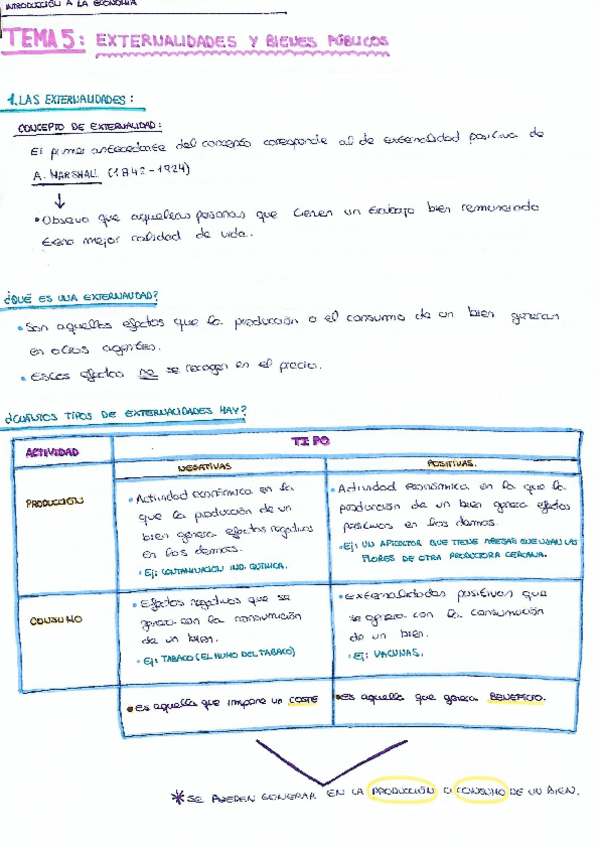 INTRODUCCIÓN A LA ECONOMÍA
TEMA 5: EXTERNALIDADES Y BIENES PÚBLICOS
1. LAS EXTERNALIDADES:
CONCEPTO DE EXTERNALIDAD:
El primer antecedente del concepto corresponde al de externalidad positiva de
A. MARSHALL (1842-1924)
↓
• Observo que aquellas personas que tienen un trabajo bien remunerado
tiene mejor calidad de vida.
¿QUÉ ES UNA EXTERNALIDAD?
• Son aquellos efectos que la producción o el consumo de un bien generan
en otros agentes.
• Estos efectos no se recogen en el precio.
¿CUÁNTOS TIPOS DE EXTERNALIDADES HAY?
ACTIVIDAD
TIPO
NEGATIVAS
POSITIVAS.
PRODUCCIÓN
• Actividad económica en la
que la producción de un
bien genera efectos negativos
en los demas.
• Ej: CONTAMINACIÓN IND. QUÍMICA.
• Actividad económica en la que la
producción de un bien genera efectos
positivos en los demas.
• Ej: UN APICULTOR QUE TIENE ABEJAS QUE USAN LAS
FLORES DE OTRA PRODUCTORA CERCANA.
CONSUMO
• Efectos negativos que se
genera con la consumición
de un bien.
• Ej: TABACO (EL HUMO DEL TABACO)
• Externalidades positivas que
se genera con la consumición
de un bien.
• Ej: VACUNAS.
• Es aquella que impone un COSTE
• Es aquella que genera BENEFICIO.
* SE PUEDEN GENERAR EN LA PRODUCCIÓN O CONSUMO DE UN BIEN.